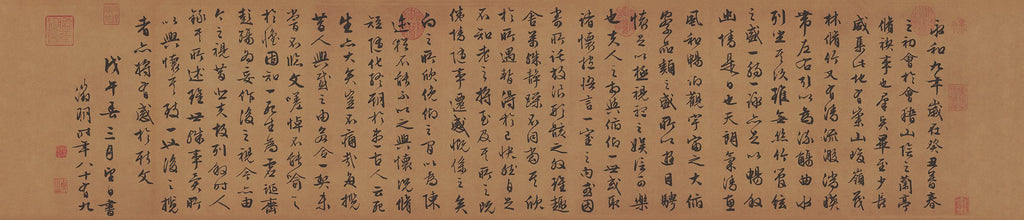 永和九年歲在癸丑暮春
之初會於會稽山陰之蘭亭
脩禊事也羣賢畢至少長
咸集此地有崇山峻嶺茂
林脩竹又有清流激湍映
帶左右引以為流觴曲水
列坐其次雖無絲竹管絃
之盛一觴一詠亦足以暢敘
幽情是日也天朗氣清惠
風和暢仰觀宇宙之大俯
察品類之盛所以遊目騁
懷足以極視聽之娛信可樂
也夫人之相與俯仰一世或取
諸懷抱悟言一室之內或因
寄所託放浪形骸之外雖趣
舍萬殊靜躁不同當其欣
於所遇暫得於己快然自足
不知老之將至及其所之既
倦情隨事遷感慨係之矣
向之所欣俛仰之間以為陳
迹猶不能不以之興懷況脩
短隨化終期於盡古人云死
生亦大矣豈不痛哉每覽
昔人興感之由若合一契未
嘗不臨文嗟悼不能喻之
於懷固知一死生為虛誕齊
彭殤為妄作後之視今亦由
今之視昔悲夫故列敘時人
錄其所述雖世殊事異所
以興懷其致一也後之攬
者亦將有感於斯文
戊午三月望日書
徵明時年八十有九